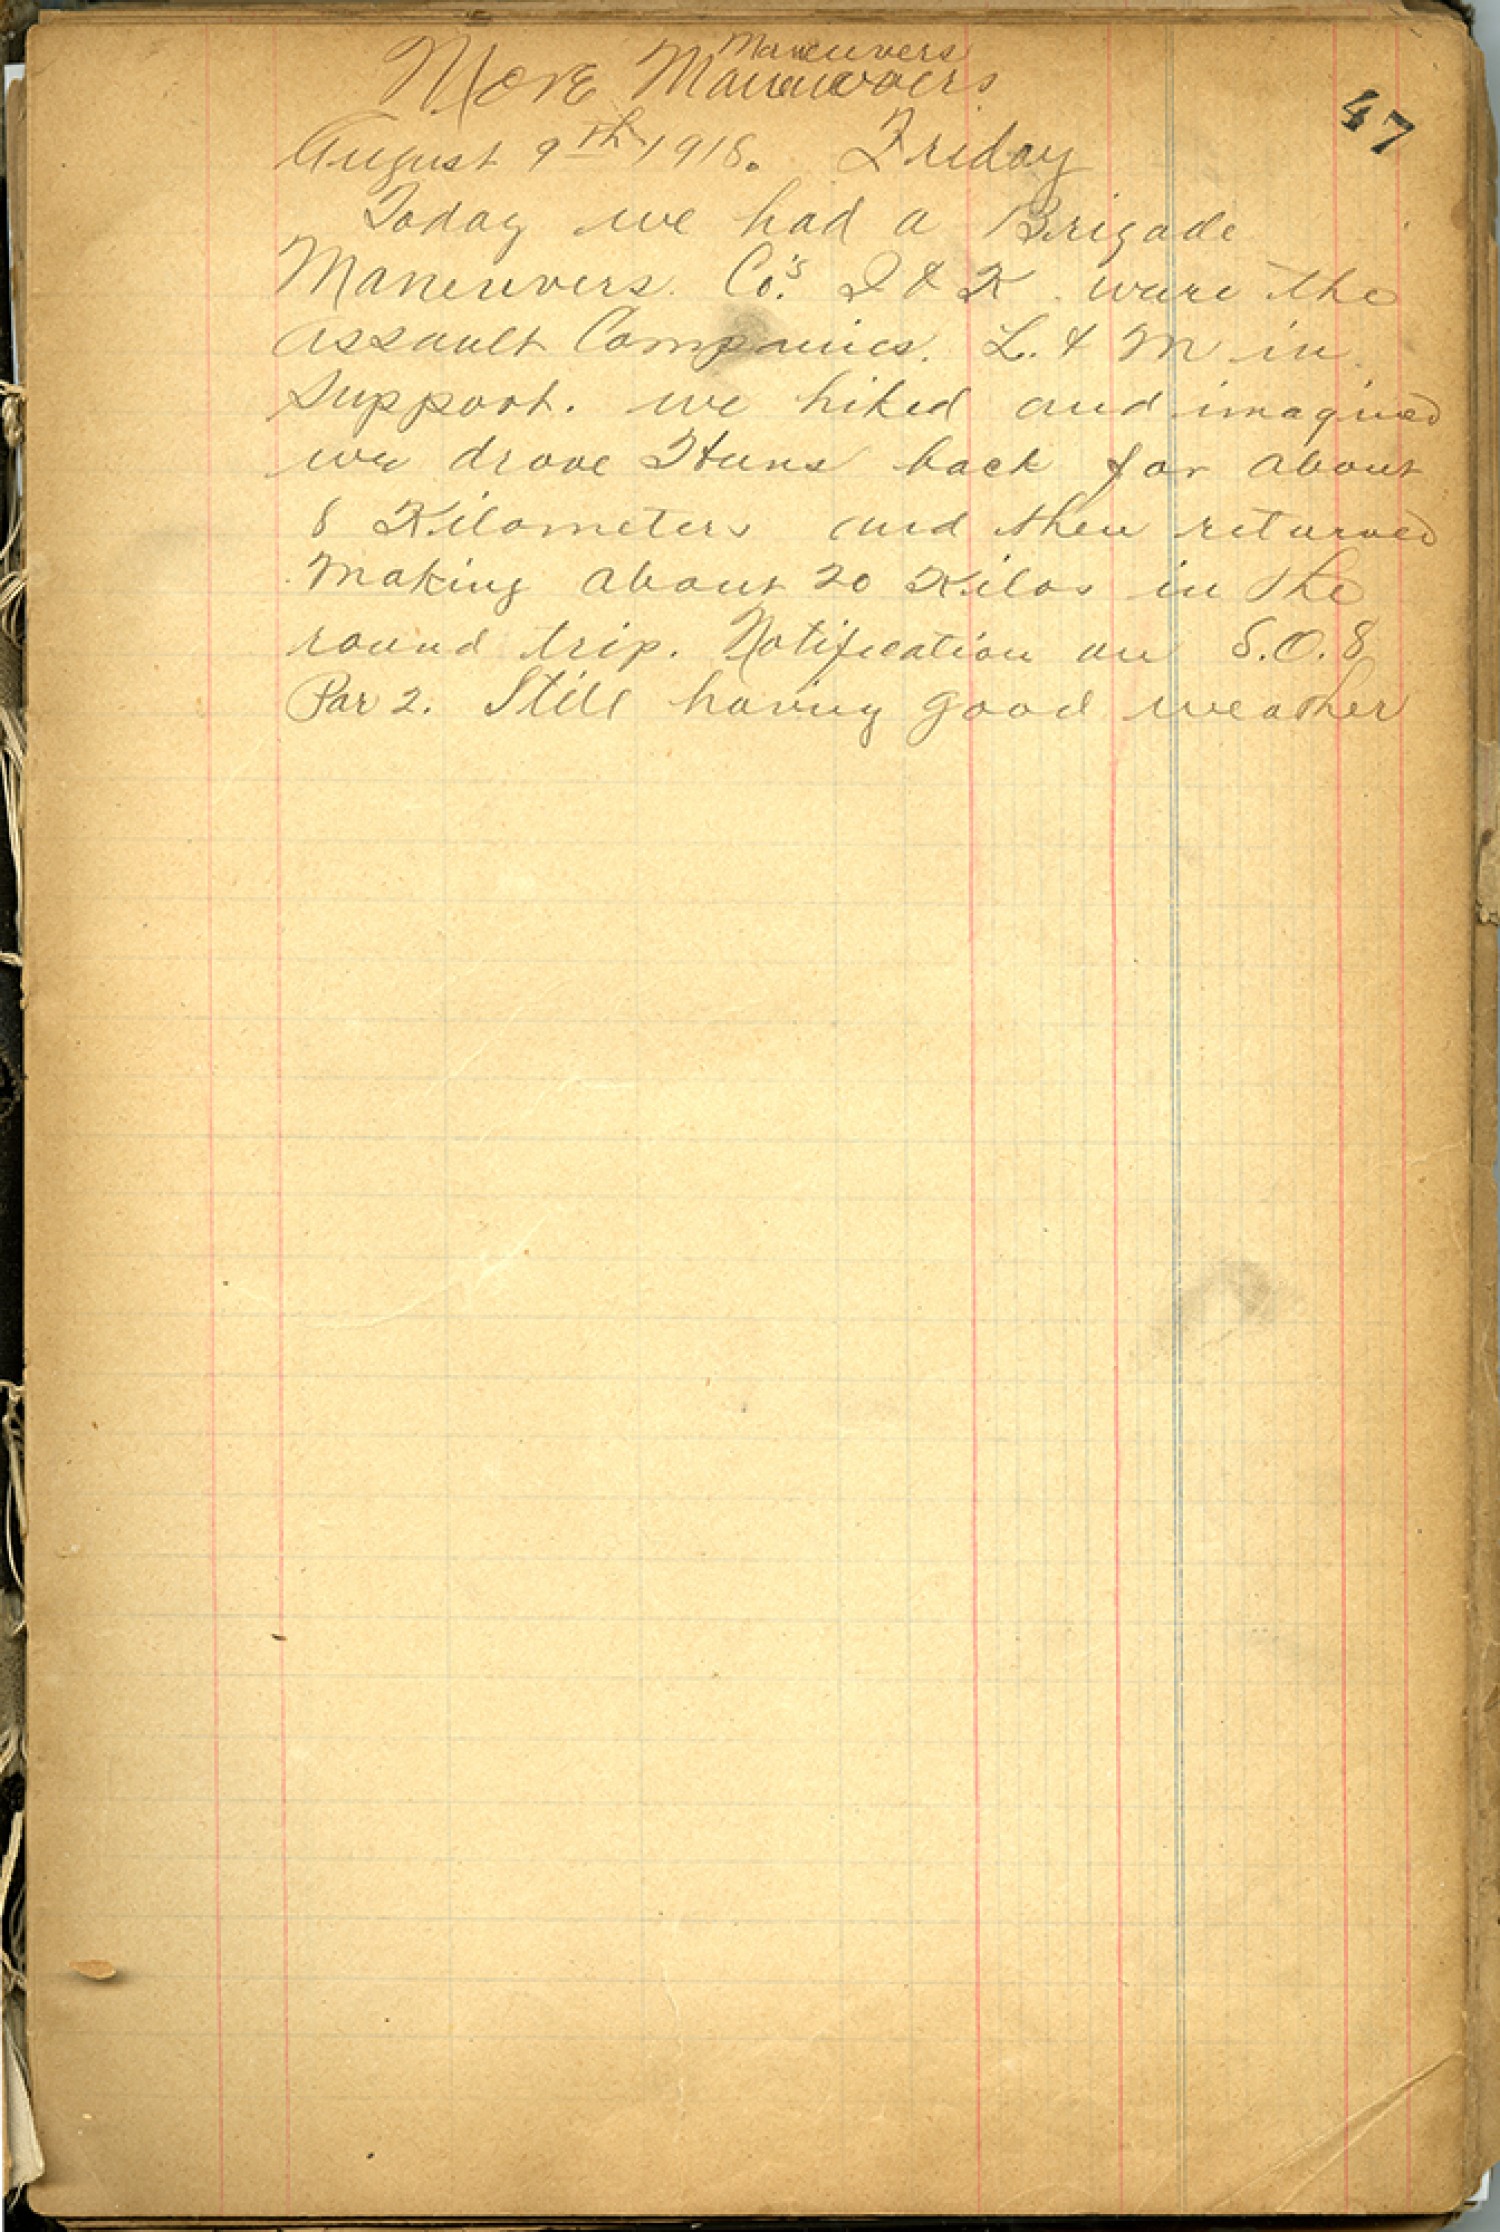 Maneuvers
More Maneuvers
47
August 9th 1918. Friday
Today we had a Brigade
Maneuvers. Co.'s I & K. ware the
assault Companies. L. & M in
support. we hiked and imagined
we drove Huns back for about
8 Kilometers and then returned
Making about 20 Kilos in the
round trip. Notification on S.O. 8
Par 2. Still having good weather